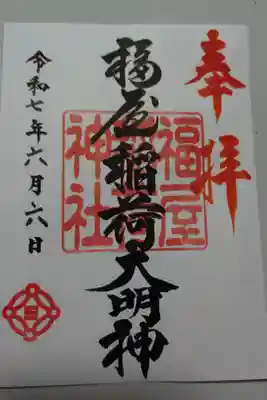 奉拝
福屋稲荷大明神
福屋
神社
令和七年六月六日